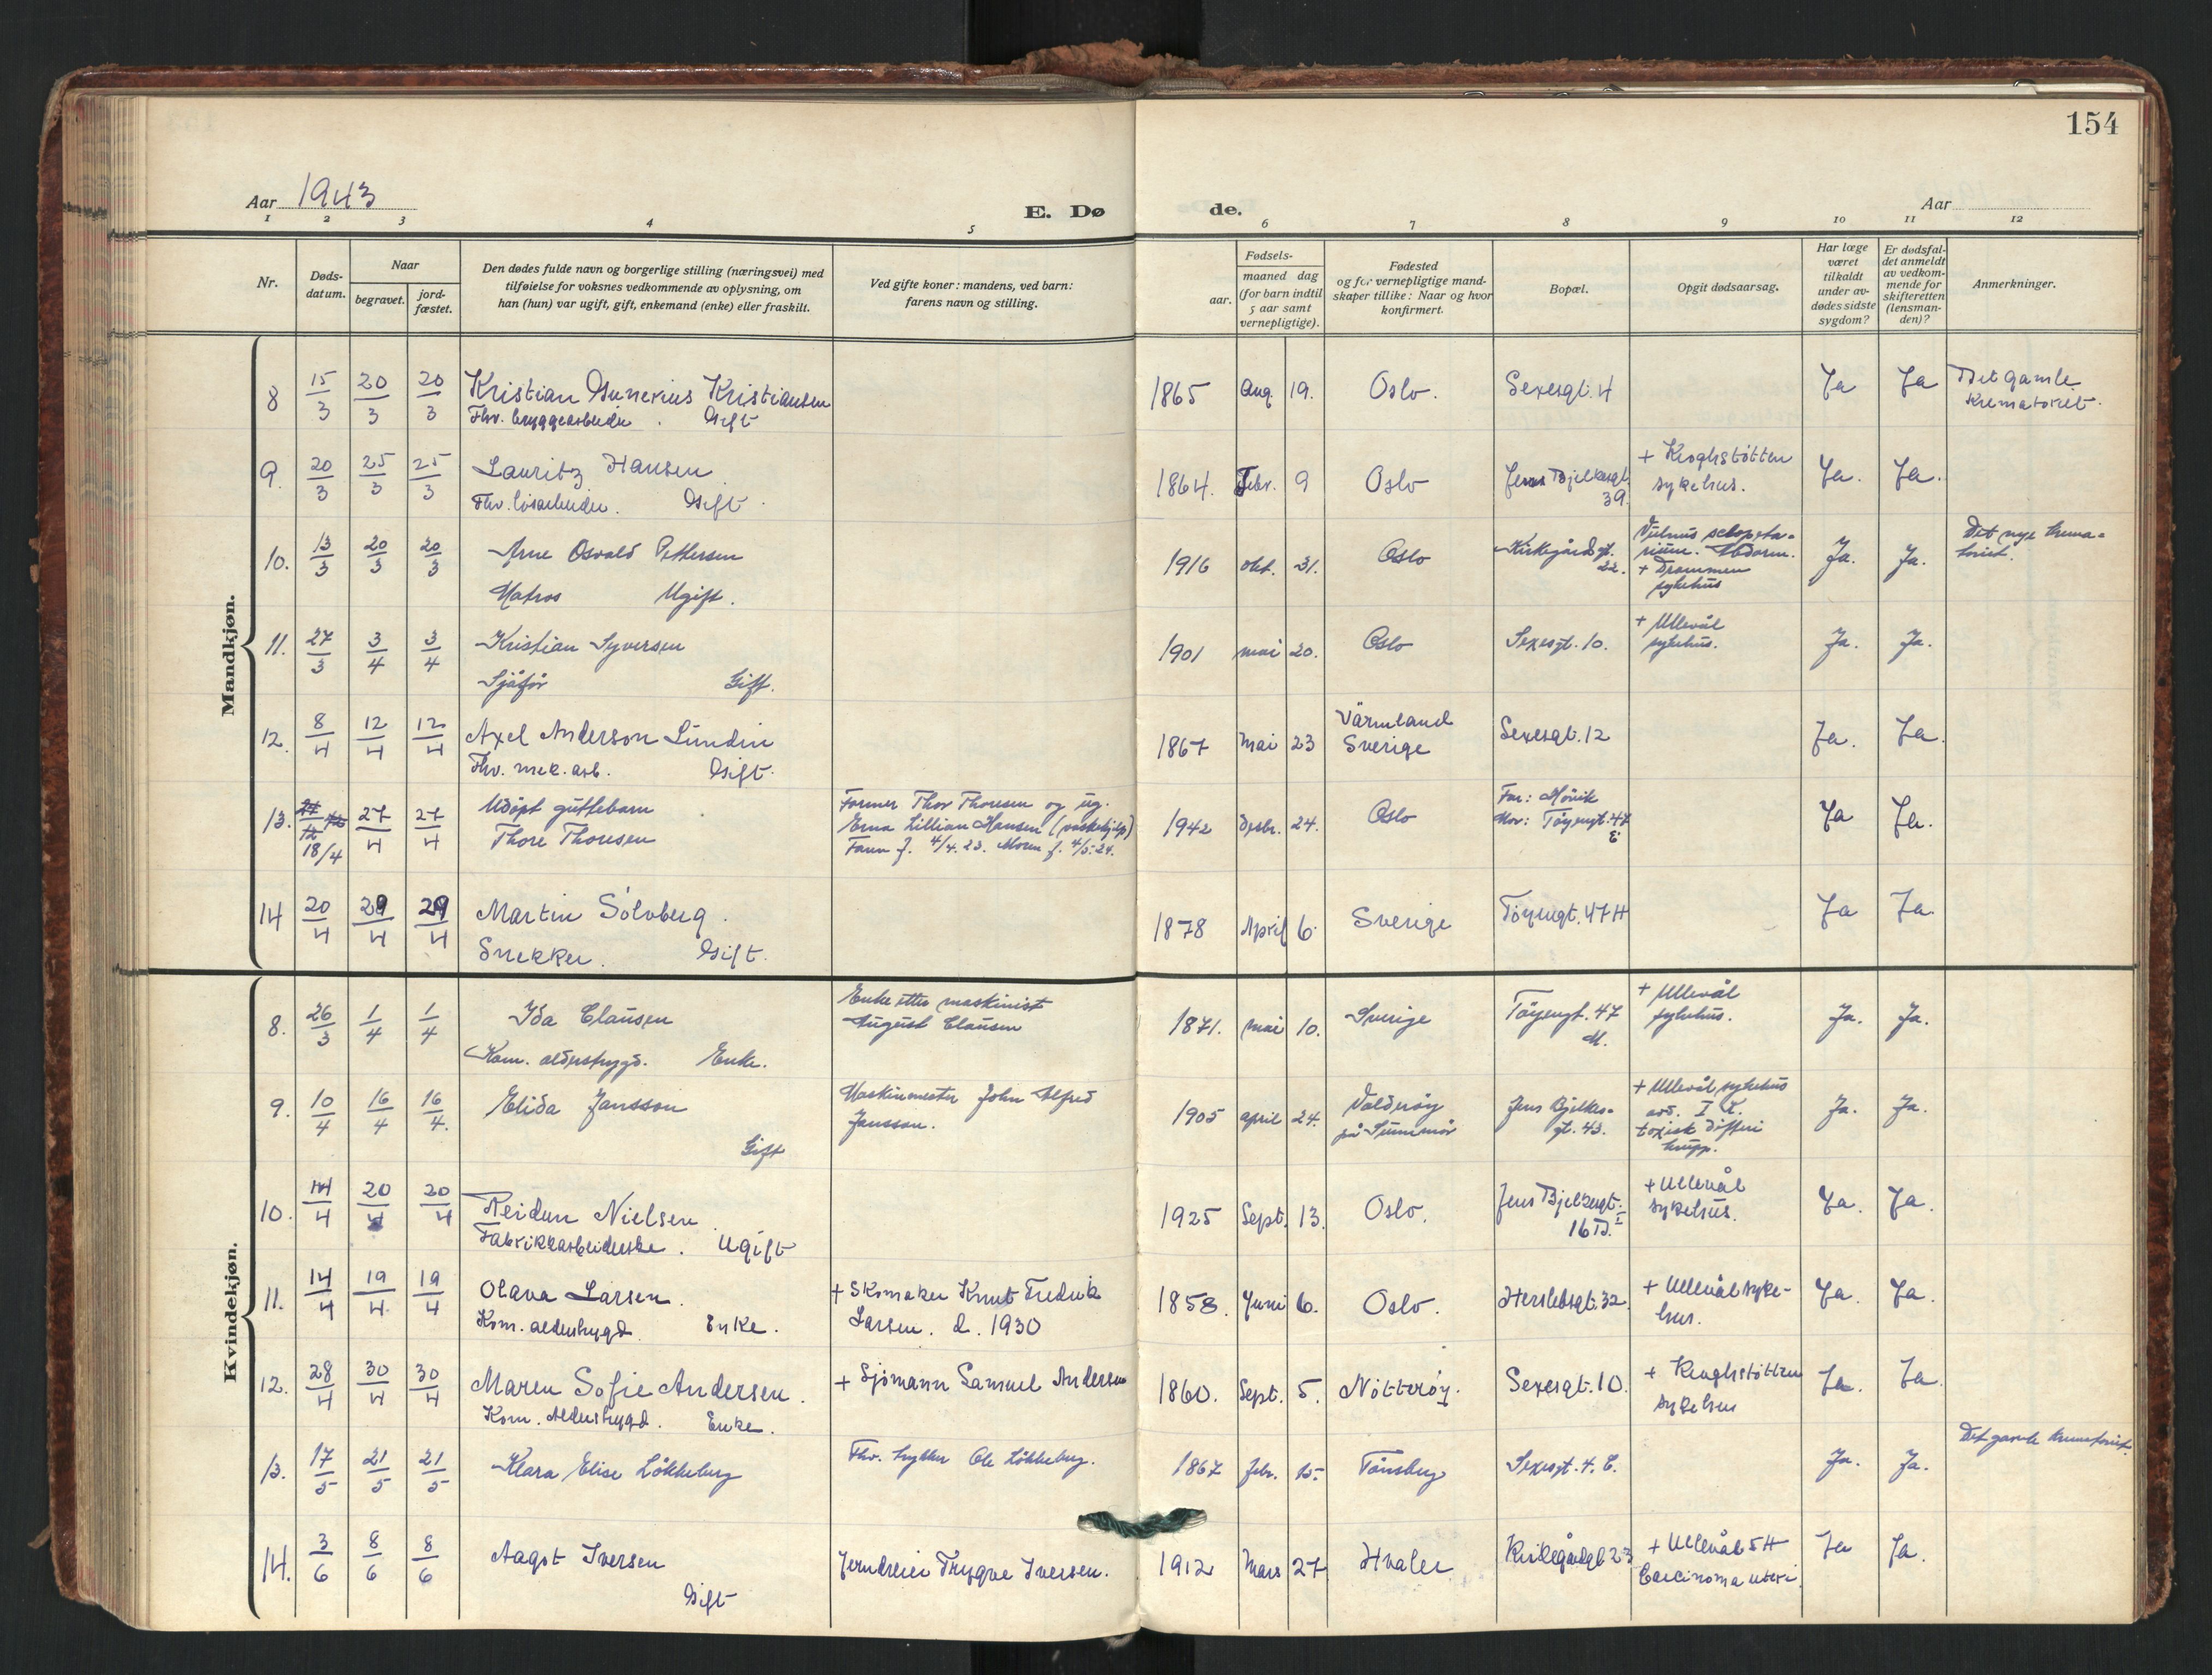 154
Aar 1943
E. Dø de.
Aar
1 2 3 4 5 6 7 8 9 10 11 12
Nr.
Døds-
datum.
Naar
begravet.
jord-
fæstet.
Den dødes fulde navn og borgerlige stilling (næringsvei) med
tilføielse for voksnes vedkommende av oplysning, om
han (hun) var ugift, gift, enkemand (enke) eller fraskilt.
Ved gifte koner: mandens, ved barn:
farens navn og stilling.
Fødsels-
aar.
maaned dag
(for barn indtil
5 aar samt
vernepligtige).
Fødested
og for vernepligtige mand-
skaper tillike: Naar og hvor
konfirmert.
Bopæl.
Opgit dødsaarsag.
Har læge
været
tilkaldt
under av-
dødes sidste
sygdom?
Er dødsfal-
det anmeldt
av vedkom-
mende for
skifteretten
(lensman-
den)?
Anmerkninger.
Mandkjøn.
8 15/3 20/3 20/3 Kristian Gunerius Kristiansen 1865 Aug. 19. Oslo. Sexesgt. 4 Ja Ja Det gamle
Krematoriet.
Fhv. bryggearbeider. Gift
9. 20/3 25/3 25/3 Lauritz Hansen 1864. Febr. 9 Oslo Jens Bjelkesgt.
39. + Kroghstøtten
sykehus. Ja. Ja.
Fhv. løsarbeider. Gift.
10. 13/3 20/3 20/3 Arne Osvald Pettersen 1916 okt. 31. Oslo Kirkegårdsgt.
22. Vulnus sclopeta-
rium. Abdorm.
+ Drammen
sykehus Ja. Ja. Det nye krema-
toriet.
Matros Ugift.
11. 27/3 3/4 3/4 Kristian Syversen 1901 mai 20. Oslo Sexesgt. 10. + Ullevål
sykehus. Ja. Ja.
Sjåfør Gift.
12. 8/4 12/4 12/4 Axel Anderson Lundin 1867 Mai 23 Värmland
Sverige Sexesgt. 12 Ja. Ja.
Fhv. mek. arb. Gift.
13. 18/4 27/4 27/4 Udøpt guttebarn
Thore Thoresen Former Thor Thoresen og ug.
Erna Lillian Hansen (vaskehjelp)
Faren f. 4/4. 23. Moren f. 4/5. 24. 1942 Desbr. 24. Oslo Far: Mörvik
Mor: Töyengt. 47
E Ja Ja.
14 20/4 29/4 29/4 Martin Sölvberg. 1878 April 6. Sverige Töyengt. 47 H Ja Ja.
Snekker. Gift.
Kvindekjøn.
8. 26/3 1/4 1/4 Ida Clausen Enke etter maskinist
August Clausen 1871. mai 10. Sverige Töyengt. 47
M. + Ullevål
sykehus. Ja. Ja.
Kom. alderstrygd. Enke.
9. 10/4 16/4 16/4. Elida Jansson Maskinmester John Alfred
Jansson. 1905 april 24. Valderöy
på Sunnmör Jens Bjelkes-
gt. 43. + Ullevål sykehus
avd. I
toxisk difteri
krupp. Ja. Ja.
Gift
10. 14/4 20/4 20/4 Reidun Nielsen. 1925 Sept. 13. Oslo. Jens Bjelkesgt.
16 B. I + Ullevål
sykehus. Ja. Ja.
Fabrikkarbeiderske. Ugift
11. 14/4 19/4. 19/4 Olava Larsen. + Skomaker Knut Fredrik
Larsen. d. 1930 1858. Juni 6. Oslo. Herslebsgt. 32. + Ullevål syke-
hus. Ja. Ja.
Kom. alderstrygd. Enke.
12. 28/4 30/4 30/4 Maren Sofie Andersen. + Sjømann Samuel Andersen 1860. Sept. 5. Nötteröy. Sexesgt. 10. + Kroghstøtten
sykehus Ja. Ja.
Kom. alderstrygd. Enke.
13. 17/5 21/5 21/5 Klara Elise Lökkeberg Fhv. Ole Lökkeberg. 1867 febr. 15. Tönsberg Sexesgt. 4. C. Ja. Ja. Det gamle krematoriet.
14. 3/6 8/6 8/6 Aagot Iversen Jerndreier Trygve Iversen. 1912 Mars 27 Hvaler Kirkegårdsgt. 23 + Ullevål 5 H
Carcinoma uteri. Ja Ja.
Gift